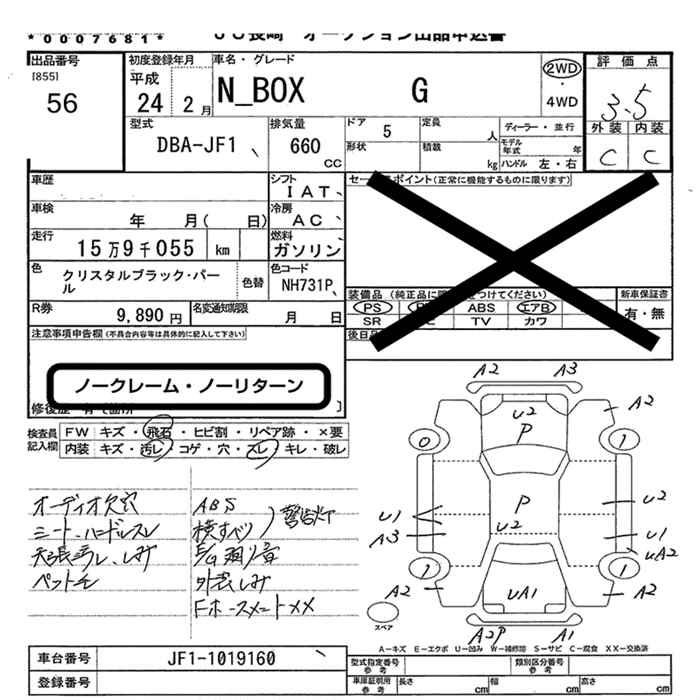 *0007681*
ＪＵ長崎 オークション出品申込書
出品番号
[855]
56
初度登録年月
平成
24 2月
車名・グレード
N_BOX G
2WD
・
4WD
評価点
3.5
外装 内装
C C
型式
DBA-JF1
排気量
660
CC
ドア 5
形状
定員 人
積載 kg
ディーラー・並行
モデル年式 年
ハンドル 左・右
車歴
シフト
IAT
車検
年 月( 日)
冷房
AC
走行
15万9千055 km
燃料
ガソリン
色
クリスタルブラック・パール
色替
色コード
NH731P
R券
9,890円
名変通知期限
月 日
セールスポイント(正常に機能するものに限ります)
装備品
PS ABS エアB
SR TV カワ
新車保証書
有・無
注意事項申告欄(不具合内容等は具体的に記入して下さい)
ノークレーム・ノーリターン
検査員
記入欄
FW キズ・飛石・ヒビ割・リペア跡・×要
内装 キズ・汚レ・コゲ・穴・スレ・キレ・破レ
オーディオ欠穴
シート、ハンドルスレ
天張汚レ、しみ
ペット毛
ABS
横すべり
警告灯
E/G廻り音
外装しみ
Fホースメント××
A2 A3
U2 P
A2
0 1
P
U2
U2
U1
A3
U1
UA2
1 1
A2 A2
UA1
A2P A1
スペア
A－キズ E－エクボ U－凹み W－補修跡 S－サビ C－腐食 XX－交換済
車台番号
JF1-1019160
登録番号
型式指定番号
参考
類別区分番号
参考
車庫証明用
参考
長さ cm 幅 cm 高さ cm